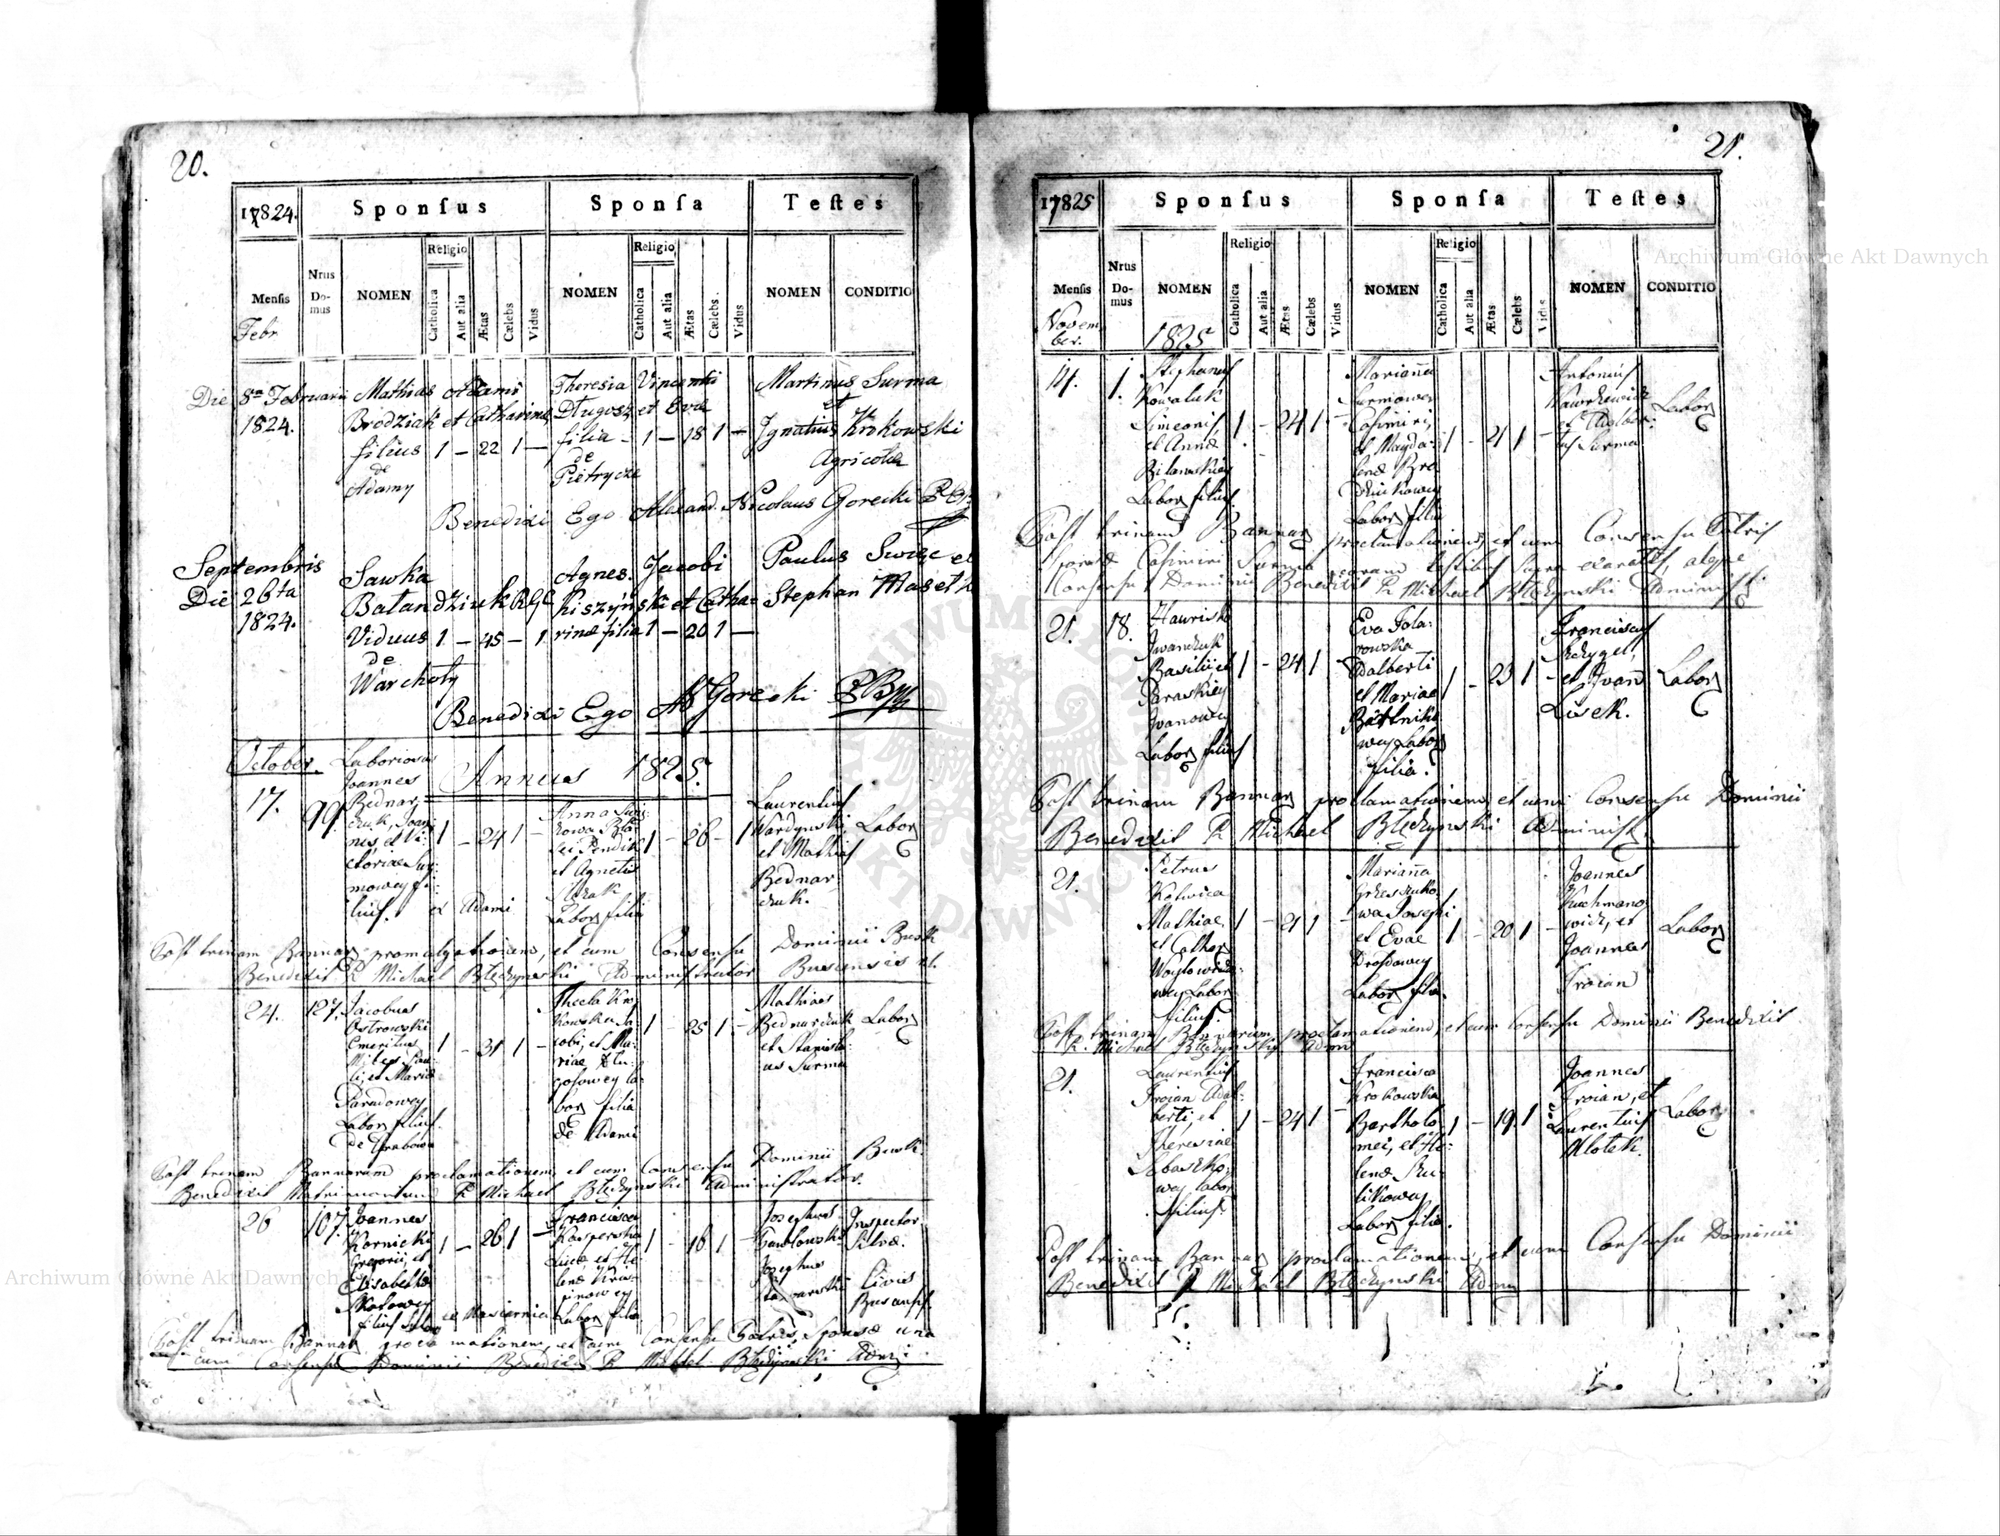 20.
17824.
Sponſus
Sponſa
Teſtes
Menſis
Febr
Nrus Do-mus
NOMEN
Religio
Catholica
Aut alia
Ætas
Cælebs
Vidus
NOMEN
Religio
Catholica
Aut alia
Ætas
Cælebs.
Vidus
NOMEN
CONDITIO
Die 8va Februarii
1824.
Mathias Adami
Brodziak et Catharinæ
filius 1 — 22 1 —
de
Adamy
Theresia Vincenti
Długosz et Evæ
filia — 1 — 18 1 —
de
Pietrycze
Martinus Surma
et
Ignatius Krokowski
Agricolæ
Benedixi Ego Alexand. Nicolaus Gorecki
Septembris
Die 26ta
1824.
Sawka
Viduus 1 — 45 — 1
de
Warchoły
Agnes. Jacobi
Kiszyński et Catha-
rinæ filia 1 — 20 1 —
Paulus Swize et
Stephan
Benedixi Ego Gorecki
October.
Annus 1825.
17.
99.
Laboriosus
Joannes
Bednar-
czuk, Joan-
nis, et Vi-
ctoriae
mowey fi-
lius.
1 — 24 1 —
et Agnetis
Labor filia
1 — 26 — 1
Laurentius
Wardynski
et Mathias
Bednar
czuk.
Labor
ex Adami
Post trinam Bannor promulgationem, et cum Consensu Dominii Busk
Benedixit P. Michael Błędzynski Administrator Buscensis
24.
127.
Jacobus
Ostrowski
Emeritus
Miles Pau-
li, et Mariæ
Labor filius
de Grabowa
1 — 31 1 —
Thecla Kro
kowska Ja
cobi, et Ma-
riae
bor filia
de Adami
1 — 25 1 —
Mathias
Bednarczuk
et Stanisla
us Surma
Labor
Post trinam Bannorum proclamationem, et cum Consensu Dominii Busk.
Benedixit Matrimonium P. Michael Błędzynski Administrator.
26
107.
Joannes
Kornicki
Gregorii, et
Elisabethæ
filius Labor
1 — 26 1 —
Francisca
Kasperska
Lucæ, et He-
lenæ
Labor filia
1 — 16 1
Josephus
Josephus
Inspector
Silvæ.
Civis
Busensis
Post trinam Bannor proclamationem, et cum Consensu Patris Sponsæ una
cum Consensu Dominii Benedixit P. Michael Błędzynski Admi.
21.
17825
Sponſus
Sponſa
Teſtes
Menſis
Novem
ber.
Nrus Do-mus
NOMEN
1825
Religio
Catholica
Aut alia
Ætas
Cælebs
Vidus
NOMEN
Religio
Catholica
Aut alia
Ætas
Cælebs
Vidus
NOMEN
CONDITIO
14.
1.
Stephanus
Kowaluk
Simeonis,
et Annæ
Labor filius.
1 — 24 1 —
Marianna
Surmowna
Casimiri,
et Magda-
lenæ
Labor filia
1 — 21 1 —
Antonius
Wawrkiewicz
et Adalber-
tus Surma
Labor
Post trinam Bannor proclamationem, et cum Consensu Patris
Sponsæ Casimiri Surma coram testibus supra exaratis, atque
Consensu Dominii Benedixit P. Michael Błędzynski Administ.
21.
18.
Hawrisko
Iwanczuk
Basilii et
Paraskiey
Iwanowey
Labor filius
1 — 24 1
Eva Pola-
rowska
Adalberti
et Mariae
wey Labor
filia.
1 — 23 1 —
Franciscus
Szczygel,
et Ivan
Lisek.
Labor
Post trinam Bannor proclamationem, et cum Consensu Dominii
Benedixit P. Michael Błędzynski Administ.
21.
Petrus
Kotwica
Mathiae
et Cathar
wey Labor
filius.
1 — 21 1 —
Marianna
wa Josephi
et Evae
Drosdowey
Labor filia.
1 — 20 1 —
Joannes
Kuchmano
wicz, et
Joannes
Troian
Labor
Post trinam Bannorum proclamationem, et cum Consensu Dominii Benedixit
P. Michael Błędzynski Admi
21.
Laurentius
Troian Adal
berti, et
Theresiae
wey Labor
filius.
1 — 24 1 —
Francisca
Krokowska
Bartholo
mei, et He-
lenæ
Labor filia.
1 — 19 1
Joannes
Troian, et
Laurentius
Mlotek.
Labor
Post trinam Bannor proclamationem, et cum Consensu Dominii
Benedixit P. Michael Błędzynski Admi
Archiwum Główne Akt Dawnych
Archiwum Główne Akt Dawnych
ARCHIWUM GŁÓWNE AKT DAWNYCH